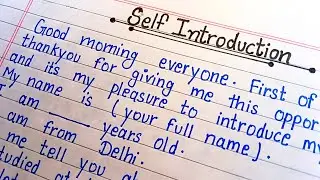 Self Introduction
Good morning everyone. First of
thankyou for giving me this oppor
and it's my pleasure to introduce my
My name is (your full name).
I am ____ years old.
am from Delhi.
me tell you
studied at